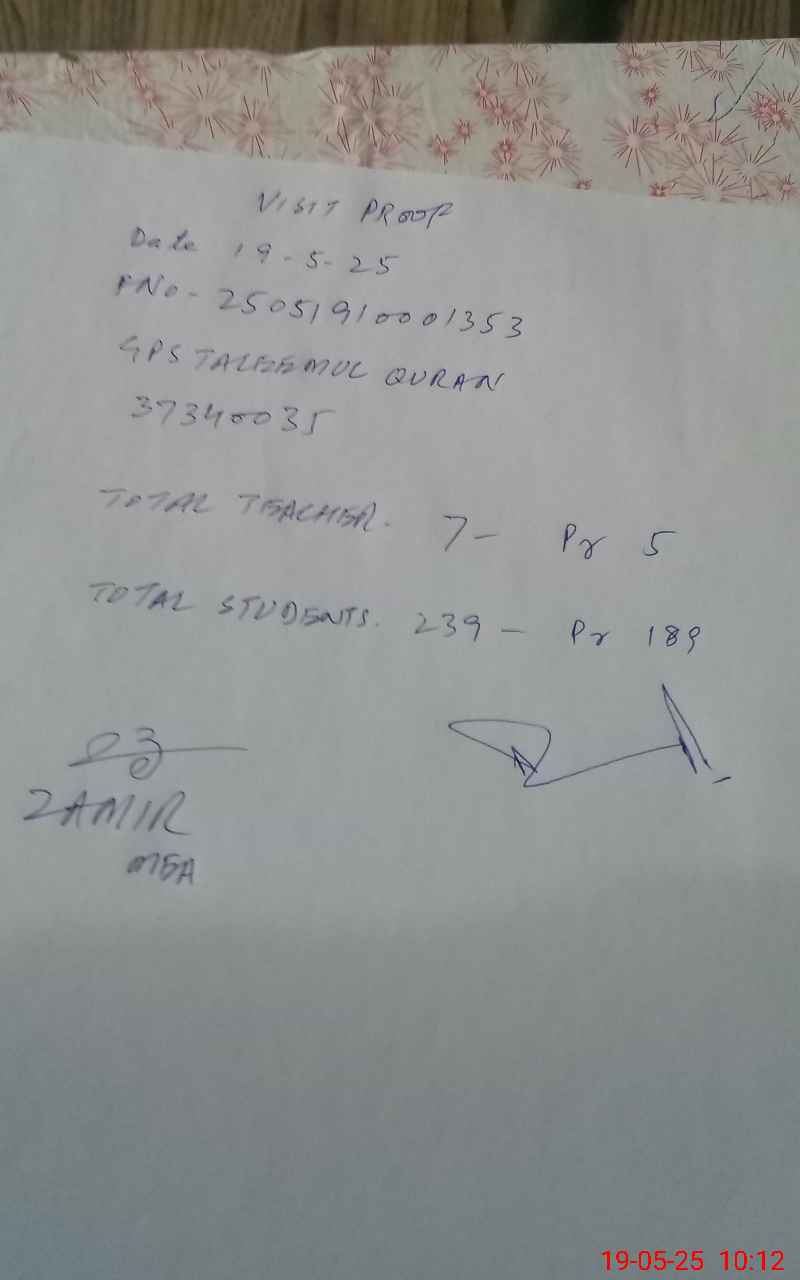 VISIT PROOF
Date 19-5-25
FNo- 25051910001353
GPS TALEEMUL QURAN
37340035
TOTAL TEACHER. 7- Pr 5
TOTAL STUDENTS. 239 - Pr 189
ZAMIR
MEA
19-05-25 10:12